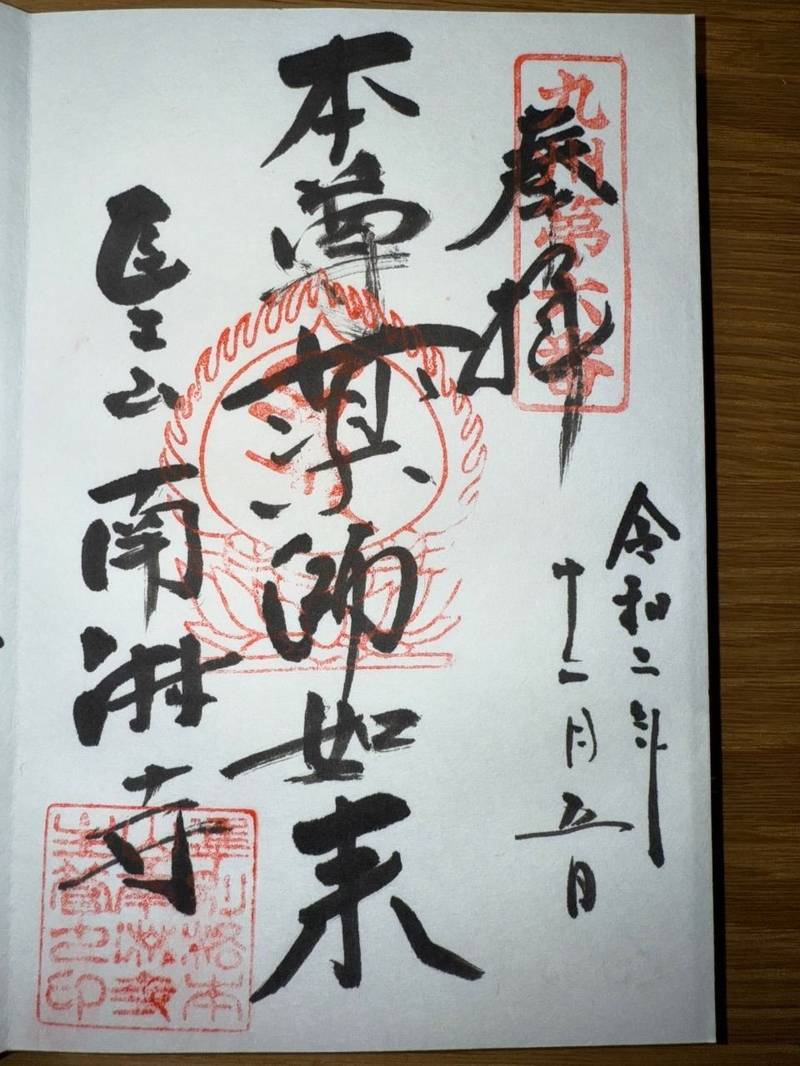 九州第六番
奉拝
令和二年
十二月五日
本尊薬師如来
医王山南淋寺